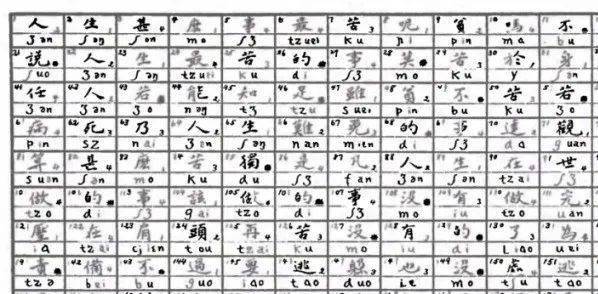 人 生 甚 麼 事 最 苦 呢 貧 嗎 不
ʒən ʃəŋ ʃən mo ʃʒ tzuei ku ni pin ma bu
說 人 生 最 苦 的 事 莫 苦 於 身
ʃuo ʒən ʃəŋ tzuei ku di ʃʒ mo ku y ʃən
任 人 若 能 知 足 雖 貧 不 苦 若
ʒən ʒən ʒo nəŋ tʒ tzu suei pin bu ku ʒo
病 死 乃 人 生 難 免 的 事 達 觀
pin sz nai ʒən ʃəŋ nan miɛn di ʃʒ da guan
算 甚 麼 苦 獨 是 凡 人 生 在 世
suan ʃən mo ku du ʃʒ fan ʒən ʃəŋ tzai ʃʒ
做 的 事 該 做 的 事 沒 有 做 完
tzo di ʃʒ gai tzo di ʃʒ mo iu tzo uan
壓 在 肩 頭 再 苦 沒 有 的 了 為
ia tzai tou tzai ku mo iu di liao uei
責 備 不 過 要 逃 躲 也 沒 處 逃
tzə bei bu guo iao tao duo iɛ mo tʃu tao